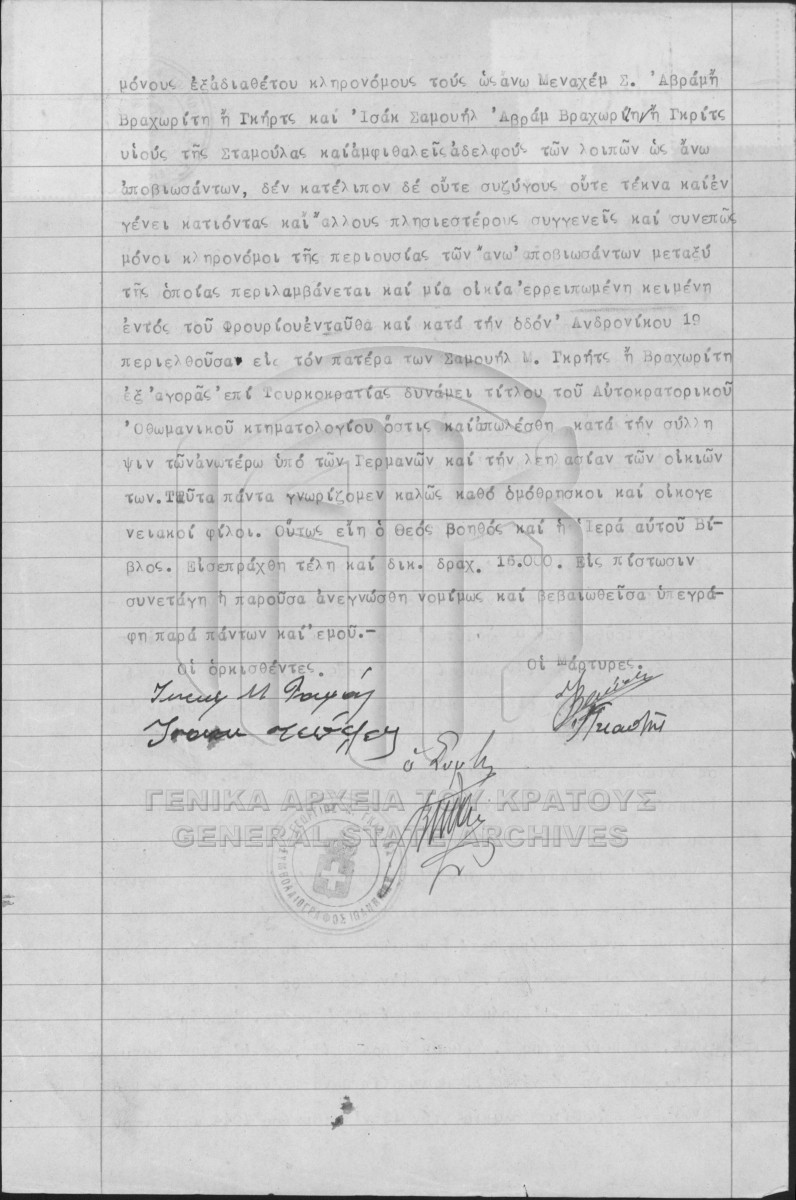 μόνους ἐξἀδιαθέτου κληρονόμους τούς ὡς ἄνω Μεναχέμ Σ. Ἀβράμ ἤ
Βραχωρίτη ἤ Γκῆρτς καί Ἰσάκ Σαμουήλ Ἀβράμ Βραχωρίτη ἤ Γκρίτς
υἱούς τῆς Σταμούλας καίἀμφιθαλεῖς ἀδελφούς τῶν λοιπῶν ὡς ἄνω
ἀποβιωσάντων, δέν κατέλιπον δέ οὔτε συζύγους οὔτε τέκνα καίἐν
γένει κατιόντας καί ἄλλους πλησιεστέρους συγγενεῖς καί συνεπῶς
μόνοι κληρονόμοι τῆς περιουσίας τῶν ἄνω ἀποβιωσάντων μεταξύ
τῆς ὁποίας περιλαμβάνεται καί μία οἰκία ἐρρειπωμένη κειμένη
ἐντός τοῦ Φρουρίουἐνταῦθα καί κατά τήν ὁδόν Ἀνδρονίκου 19
περιελθοῦσα εἰς τόν πατέρα των Σαμουήλ Μ. Γκρήτς ἤ Βραχωρίτη
ἐξ ἀγορᾶς ἐπί Τουρκοκρατίας δυνάμει τίτλου τοῦ Αὐτοκρατορικοῦ
Ὀθωμανικοῦ κτηματολογίου ὅστις καίἀπωλέσθη κατά τήν σύλλη
ψιν τῶνἀνωτέρω ὑπό τῶν Γερμανῶν καί τήν λεηλασίαν τῶν οἰκιῶν
των.Ταῦτα πάντα γνωρίζομεν καλῶς καθό ὁμόθρησκοι καί οἰκογε
νειακοί φίλοι. Οὕτως εἴη ὁ Θεός βοηθός καί ἡ Ἱερά αὐτοῦ Βί-
βλος. Εἰσεπράχθη τέλη καί δικ. δραχ. 16.000. Εἰς πίστωσιν
συνετάγη ἡ παροῦσα ἀνεγνώσθη νομίμως καί βεβαιωθεῖσα ὑπεγρά-
φη παρά πάντων καί ἐμοῦ.-
Οἱ ὁρκισθέντες. Οἱ Μάρτυρες.
ὁ Συμβ
ΓΕΝΙΚΑ ΑΡΧΕΙΑ ΤΟΥ ΚΡΑΤΟΥΣ
GENERAL STATE ARCHIVES